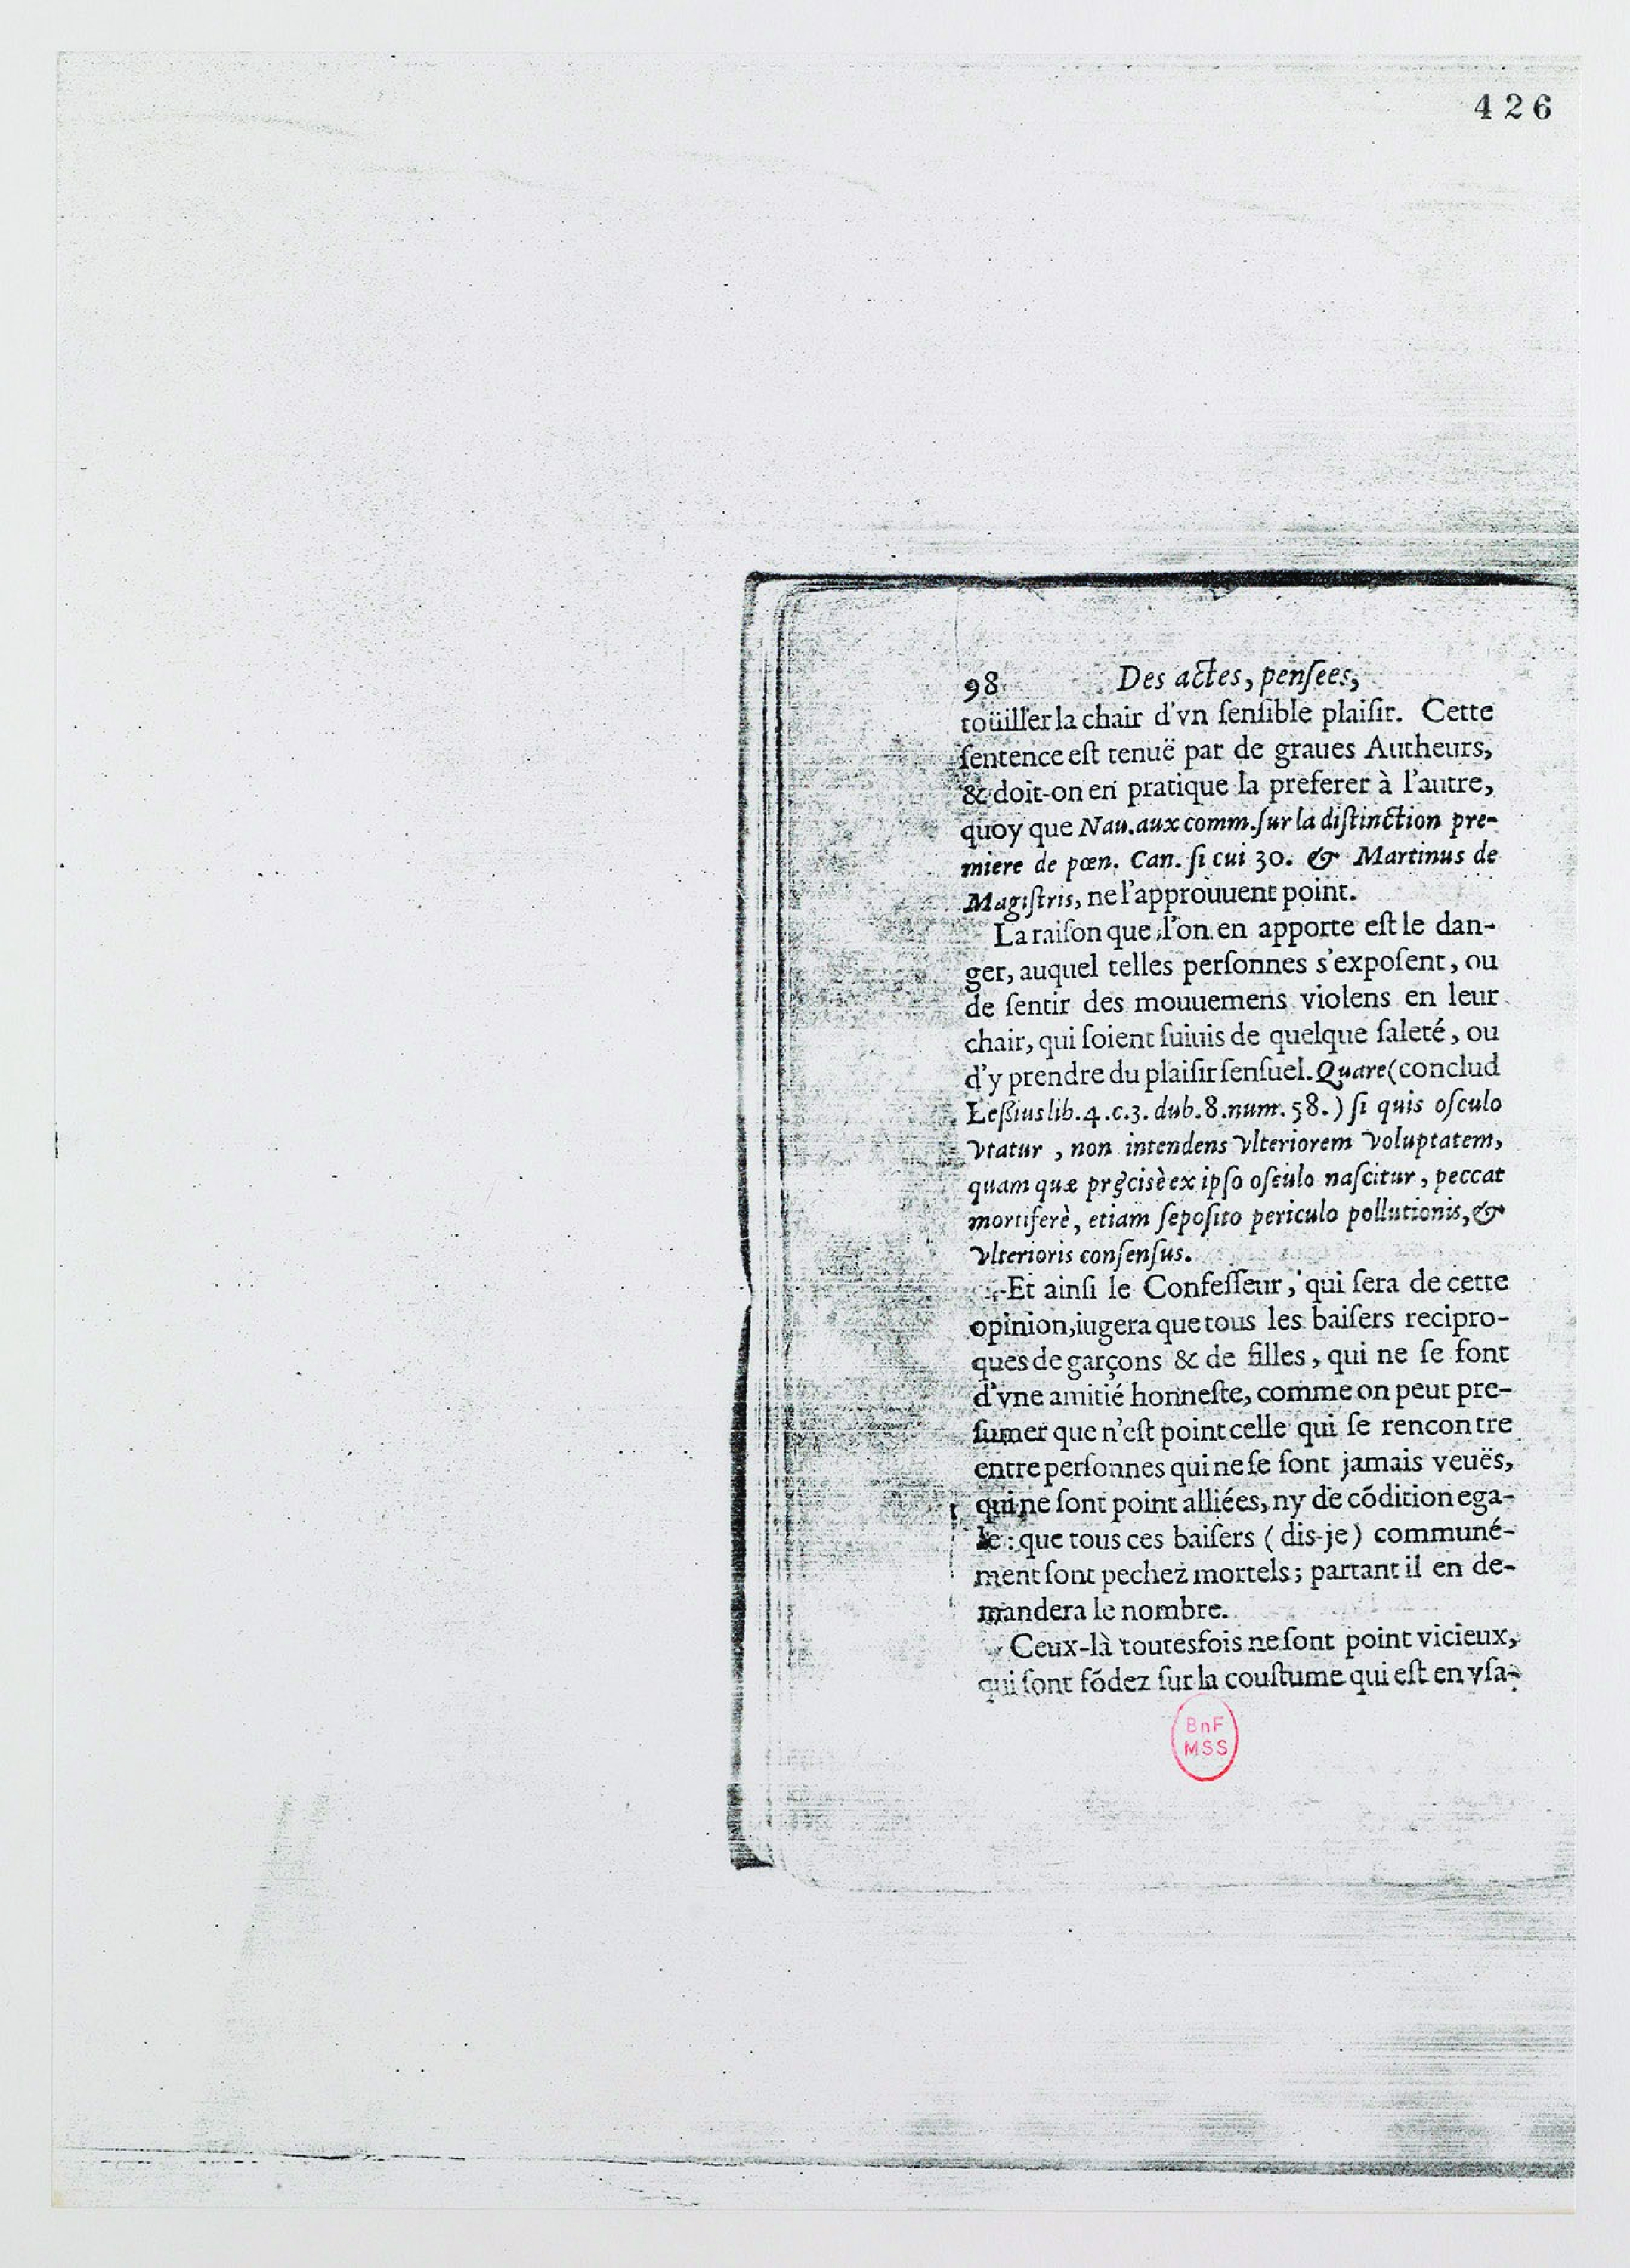 426
98 Des actes, pensees,
toüiller la chair d'vn sensible plaisir. Cette
sentence est tenuë par de graues Autheurs,
& doit-on en pratique la preferer à l'autre,
quoy que Nau. aux comm. sur la distinction pre-
miere de pœn. Can. si cui 30. & Martinus de
Magistris, ne l'approuuent point.
La raison que l'on en apporte est le dan-
ger, auquel telles personnes s'exposent, ou
de sentir des mouuemens violens en leur
chair, qui soient suiuis de quelque saleté, ou
d'y prendre du plaisir sensuel. Quare (conclud
Lessius lib. 4. c. 3. dub. 8. num. 58.) si quis osculo
vtatur, non intendens vlteriorem voluptatem,
quam quæ pręcisè ex ipso osculo nascitur, peccat
mortiferè, etiam seposito periculo pollutionis, &
vlterioris consensus.
Et ainsi le Confesseur, qui sera de cette
opinion, iugera que tous les baisers recipro-
ques de garçons & de filles, qui ne se font
d'vne amitié honneste, comme on peut pre-
sumer que n'est point celle qui se rencontre
entre personnes qui ne se sont jamais veuës,
qui ne sont point alliées, ny de cõdition ega-
le : que tous ces baisers (dis-je) communé-
ment sont pechez mortels ; partant il en de-
mandera le nombre.
Ceux-là toutesfois ne sont point vicieux,
qui sont fõdez sur la coustume qui est en vsa-
BnF
MSS